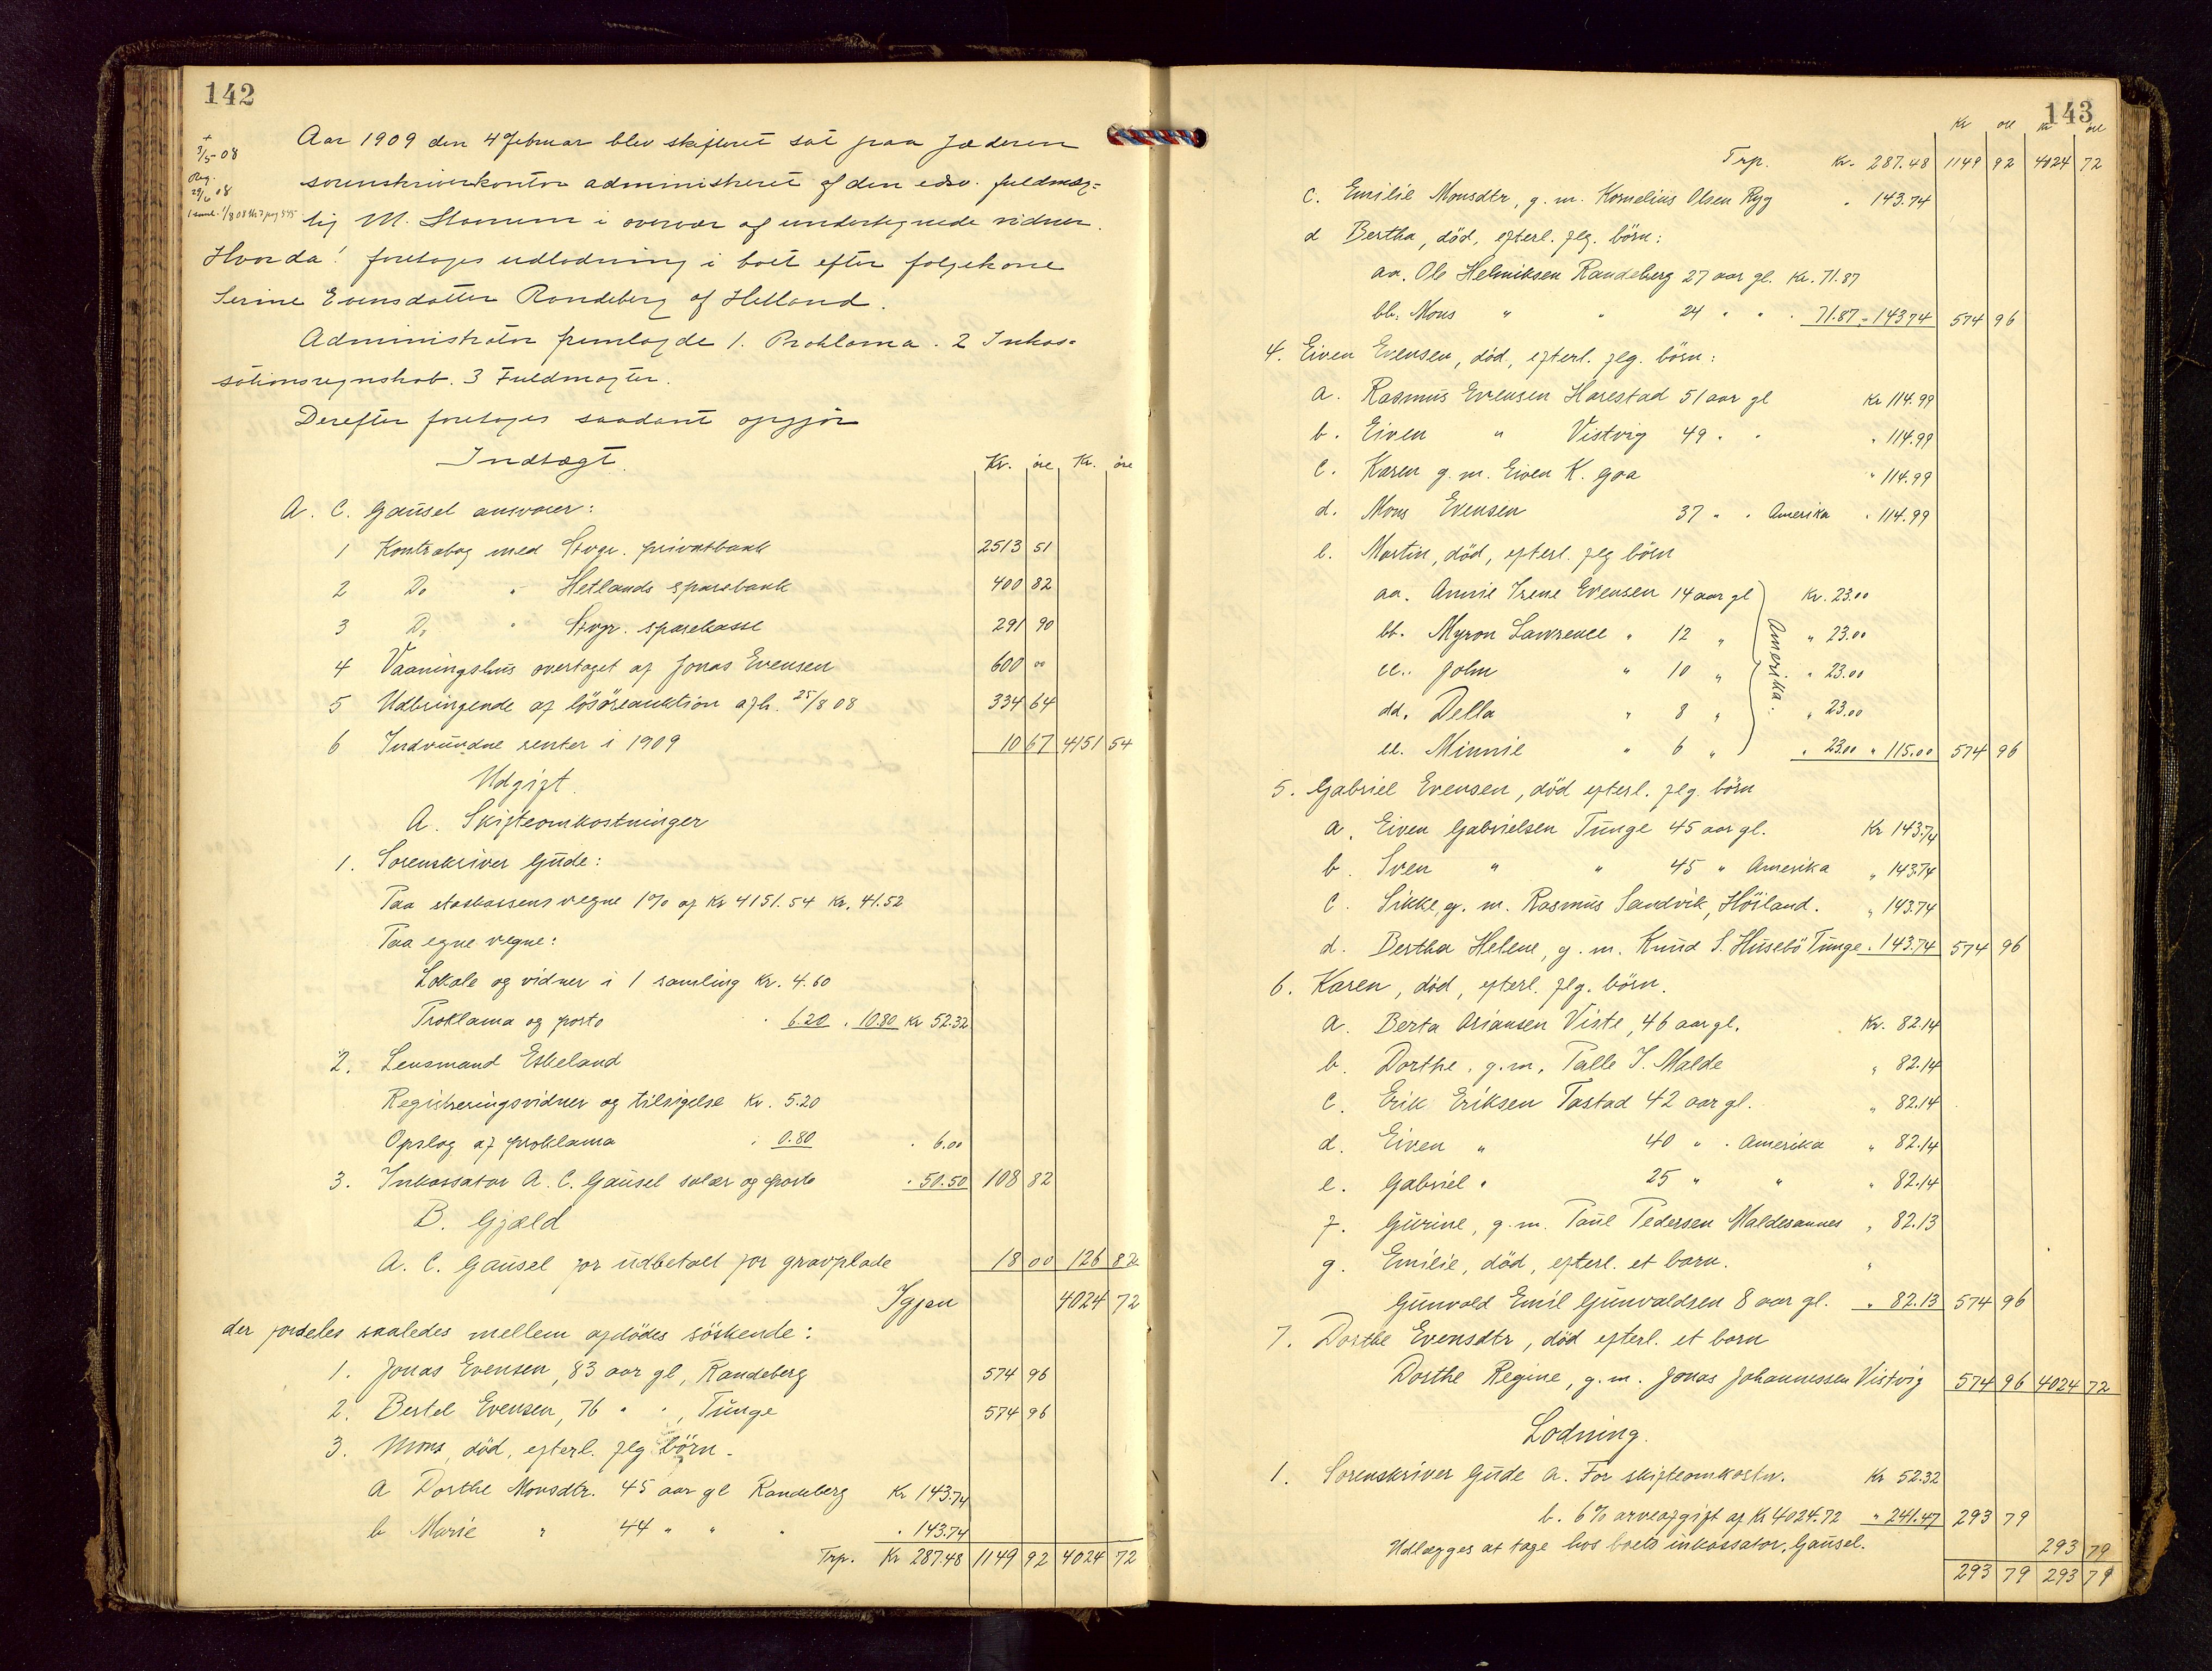 142
+
3/5-08
Reg.
29/6 08
Aar 1909 den 4 februar blev skifteret sat paa Jæderen
sorenskriverkontor administreret af den edsv. fuldmæg-
tig M. Stamum i overvær af undertegnede vidner.
Hvorda! foretoges udlodning i boet efter følgekone
Serine Evensdatter Randeberg af Hetland.
Administrator fremlagde 1. Proklama. 2 Inkas-
sationsregnskab. 3 Fuldmagter.
Derefter foretoges saadant opgjør
Indtægt. Kr. øre Kr. øre
A. C. Gausel ansvarer:
1 Kontrabog med Stvgr. privatbank 2513 51
2 Do " Hetlands sparebank 400 82
3 Do " Stvgr. sparekasse 291 90
4 Vaaningshus overtaget af Jonas Evensen 600 00
5 Udbringende af lösöreauktion afh. 25/8 08 334 64
6 Indvundne renter i 1909 10 67 4151 54
Udgift.
A. Skifteomkostninger
1. Sorenskriver Gude:
Paa statskassens vegne 1% af Kr 4151.54 Kr. 41.52
Paa egne vegne:
Lokale og vidner i 1 samling Kr. 4.60
Proklama og porto " 6.20 " 10.80 Kr 52.32
2. Lensmand Eskeland
Registreringsvidner og tilsigelse Kr. 5.20
Opslag af proklama " 0.80 " 6.00
3. Inkassator A. C. Gausel salær og porto " 50.50 108 82
B. Gjæld
A. C. Gausel for udbetalt for gravplade 18 00 126 82
Igjen 4024 72
der fordeles saaledes mellem afdödes söskende:
1. Jonas Evensen, 83 aar gl, Randeberg 574 96
2. Bertel Evensen, 76 " ", Tunge 574 96
3. Mons, död, efterl. flg. börn.
a Dorthe Monsdtr. 45 aar gl Randeberg Kr 143.74
b Marie " 44 " " " " 143.74
Trp. Kr 287.48 1149 92 4024 72
143
Kr øre Kr øre
Trp. Kr. 287.48 1149 92 4024 72
c. Emilie Monsdtr, g. m. Kornelius Olsen Ryg " 143.74
d Bertha, död, efterl. flg. börn:
aa. Ole Helmiksen Randeberg 27 aar gl. Kr. 71.87
bb. Mons " " 24 " " " 71.87 " 143 74 574 96
4. Eiven Evensen, död, efterl. flg. börn:
a. Rasmus Evensen Harestad 51 aar gl Kr 114.99
b. Eiven " Vistvig 49 " " " 114.99
c. Karen g. m. Eiven K. Goa " 114.99
d. Mons Evensen 37 " " Amerika " 114.99
e. Martin, död, efterl. flg börn
aa. Annie Irene Evensen 14 aar gl Kr. 23.00
bb. Myron Lawrence " 12 " " 23.00
cc. John " 10 " " 23.00
dd. Della " 8 " " 23.00
ee. Minnie " 6 " " 23.00 " 115.00 574 96
Amerika.
5. Gabriel Evensen, död efterl. flg. börn
a. Eiven Gabrielsen Tunge 45 aar gl. Kr 143.74
b. Sven " " 45 " Amerika " 143.74
c. Sikke, g. m. Rasmus Sandvik, Höiland. " 143.74
d. Bertha Helene, g. m. Knud S. Husebö Tunge " 143.74 574 96
6. Karen, död, efterl. flg. börn.
a. Berta Asiansen Viste, 46 aar gl. Kr. 82.14
b. Dorthe, g. m. Palle I. Malde " 82.14
c. Erik Eriksen Tastad 42 aar gl. " 82.14
d. Eiven " 40 " " Amerika " 82.14
e. Gabriel " 25 " " " 82.14
f. Gurine, g. m. Paul Pedersen Maldesannes " 82.13
g. Emilie, död, efterl. et barn. "
Gunvald Emil Gunvaldsen 8 aar gl. " 82.13 574 96
7. Dorthe Evensdtr, död efterl. et barn
Dorthe Regine, g. m. Jonas Johannessen Vistvig 574 96 4024 72
Lodning.
1. Sorenskriver Gude a. For skifteomkostn. Kr 52.32
b. 6% arveafgift af Kr 4024.72 " 241.47 293 79
Udlægges at tage hos boets inkassator, Gausel. 293 79
293 79 293 79